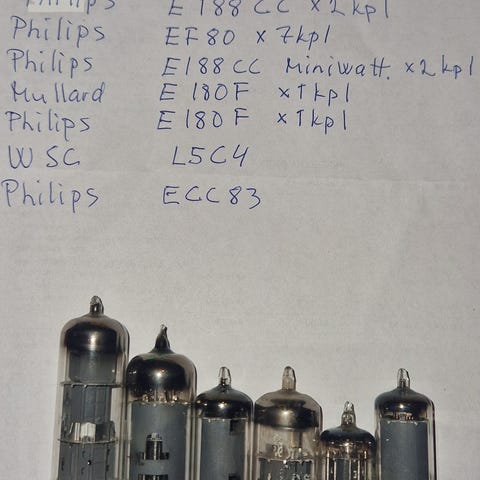 Philips E188CC x2kpl
Philips EF80 x7kpl
Philips E188CC Miniwatt. x2kpl
Mullard E180F x1kpl
Philips E180F x1kpl
WSG L5C4
Philips ECC83